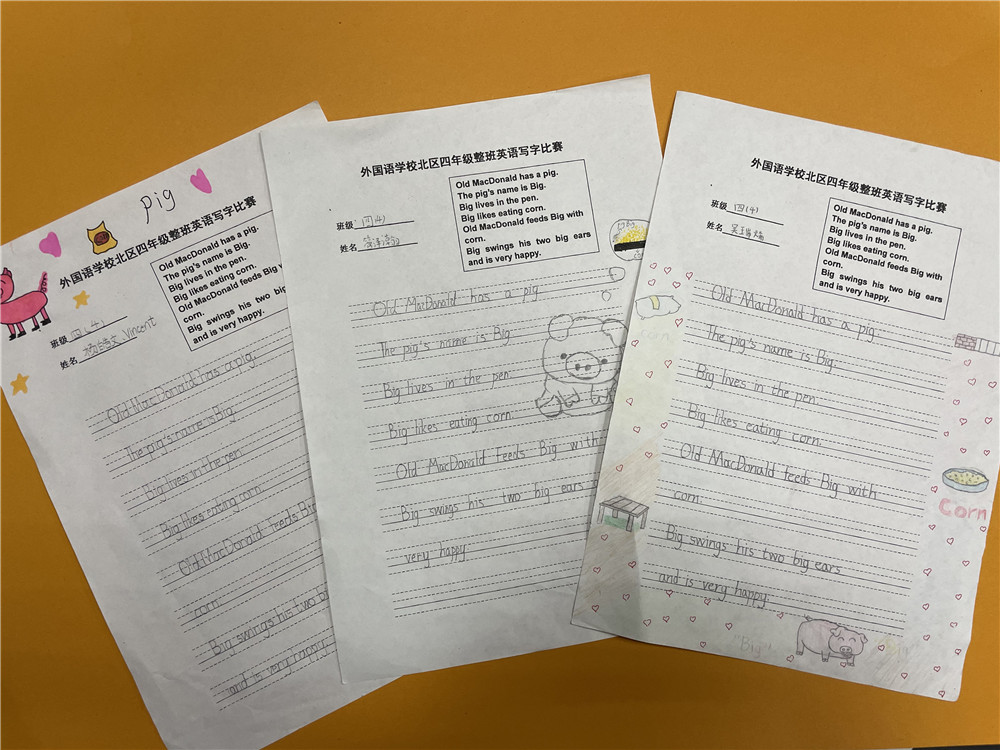 pig
外国语学校北区四年级整班英语写字比赛
Old MacDonald has a pig.
The pig's name is Big.
Big lives in the pen.
Big likes eating corn.
Old MacDonald feeds Big
corn.
Big swings his two big
and is very happy.
班级 四(4)
姓名 Vincent
Old MacDonald has a pig.
The pig's name is Big.
Big lives in the pen.
Big likes eating corn.
Old MacDonald feeds Big
corn.
Big swings his two
and is very happy.
外国语学校北区四年级整班英语写字比赛
Old MacDonald has a pig.
The pig's name is Big.
Big lives in the pen.
Big likes eating corn.
Old MacDonald feeds Big with
corn.
Big swings his two big ears
and is very happy.
班级: 四(4)
姓名
Old MacDonald has a pig
The pig's name is Big
Big lives in the pen.
Big likes eating corn.
Old MacDonald feeds Big with
Big swings his two big ears
very happy
外国语学校北区四年级整班英语写字比赛
Old MacDonald has a pig.
The pig's name is Big.
Big lives in the pen.
Big likes eating corn.
Old MacDonald feeds Big with
corn.
Big swings his two big ears
and is very happy.
班级 四(4)
姓名
Old MacDonald has a pig.
The pig's name is Big.
Big lives in the pen
Big likes eating corn.
Old MacDonald feeds Big with
corn.
Big swings his two big ears
and is very happy.
Corn
"Big"